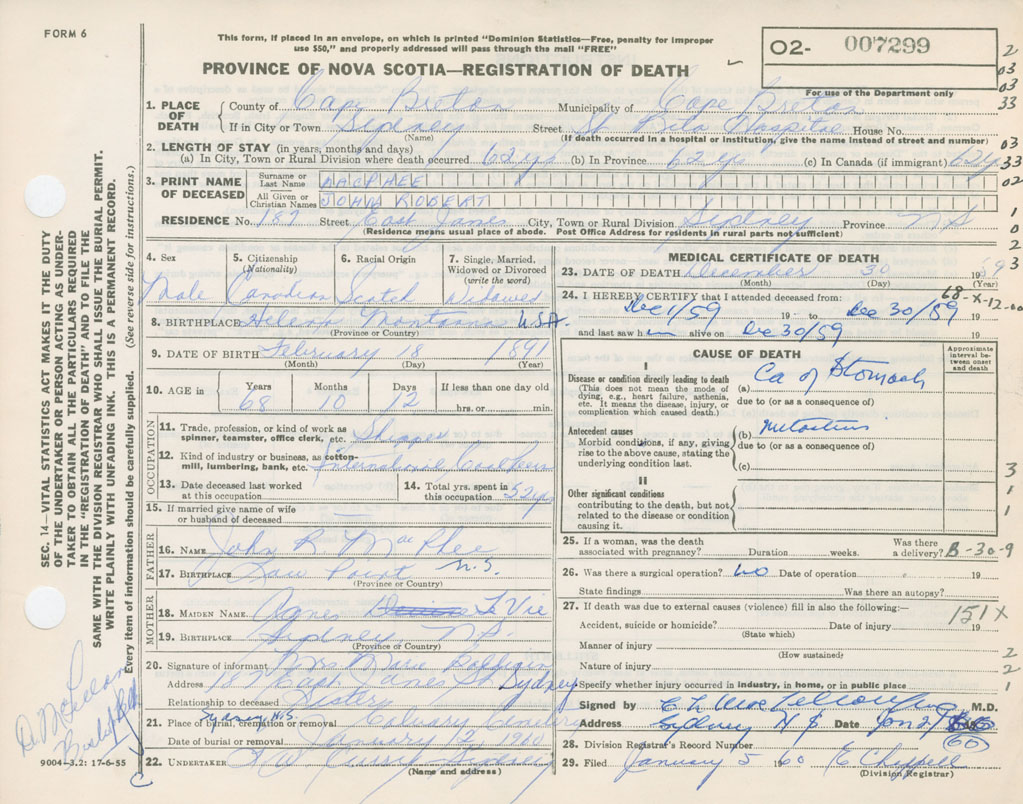 FORM 6
This form, if placed in an envelope, on which is printed "Dominion Statistics—Free, penalty for improper
use $50," and properly addressed will pass through the mail "FREE"
O2- 007299
PROVINCE OF NOVA SCOTIA—REGISTRATION OF DEATH
For use of the Department only
1. PLACE OF DEATH County of Cape Breton Municipality of Cape Breton
If in City or Town Sydney Street St Rita Hospital House No.
(Name) (If death occurred in a hospital or institution, give the name instead of street and number)
2. LENGTH OF STAY (in years, months and days)
(a) In City, Town or Rural Division where death occurred 62 yrs (b) In Province 62 yrs (c) In Canada (if immigrant) 62 yrs
3. PRINT NAME OF DECEASED Surname or Last Name MACPHEE
All Given or Christian Names JOHN ROBERT
RESIDENCE No. 187 Street City, Town or Rural Division Sydney Province NS
(Residence means usual place of abode. Post Office Address for residents in rural parts not sufficient)
4. Sex 5. Citizenship (Nationality) 6. Racial Origin 7. Single, Married, Widowed or Divorced (write the word)
Male Canadian Scotch Widowed
8. BIRTHPLACE Helena Montana USA.
(Province or Country)
9. DATE OF BIRTH February 18 1891
(Month) (Day) (Year)
10. AGE in Years Months Days If less than one day old
68 10 12 hrs. or min.
OCCUPATION
11. Trade, profession, or kind of work as spinner, teamster, office clerk, etc. Shipper
12. Kind of industry or business, as cotton-mill, lumbering, bank, etc. International
13. Date deceased last worked at this occupation
14. Total yrs. spent in this occupation 52 yrs
15. If married give name of wife or husband of deceased
FATHER
16. NAME John R. MacPhee
17. BIRTHPLACE Low Point N.S.
(Province or Country)
MOTHER
18. MAIDEN NAME Agnes Le Vie
19. BIRTHPLACE Sydney NS.
(Province or Country)
20. Signature of informant Mrs Marie
Address 187 St Sydney
Relationship to deceased Sister
21. Place of burial, cremation or removal Sydney N.S. Calvary Cemetery
Date of burial or removal January 12, 1960
22. UNDERTAKER Sydney
(Name and address)
MEDICAL CERTIFICATE OF DEATH
23. DATE OF DEATH December 30 1959
(Month) (Day) (Year)
68-X-12-00
24. I HEREBY CERTIFY that I attended deceased from:
Dec 1/59 19 to Dec 30/59 19
and last saw him alive on Dec 30/59 19
CAUSE OF DEATH
Approximate interval between onset and death
I
Disease or condition directly leading to death
(This does not mean the mode of dying, e.g., heart failure, asthenia, etc. It means the disease, injury, or complication which caused death.)
(a) Ca of Stomach
due to (or as a consequence of)
Antecedent causes
Morbid conditions, if any, giving rise to the above cause, stating the underlying condition last.
(b)
due to (or as a consequence of)
(c)
II
Other significant conditions
contributing to the death, but not related to the disease or condition causing it.
25. If a woman, was the death associated with pregnancy? Duration weeks. Was there a delivery? B-30-9
26. Was there a surgical operation? no Date of operation 19
State findings Was there an autopsy?
27. If death was due to external causes (violence) fill in also the following:—
151X
Accident, suicide or homicide? Date of injury 19
(State which)
Manner of injury
(How sustained)
Nature of injury
Specify whether injury occurred in industry, in home, or in public place
Signed by M.D.
Address Sydney N S Date Jan 2/
60
28. Division Registrar's Record Number
29. Filed January 5 1960 E Chappell
(Division Registrar)
SEC. 14—VITAL STATISTICS ACT MAKES IT THE DUTY
OF THE UNDERTAKER OR PERSON ACTING AS UNDER-
TAKER TO OBTAIN ALL THE PARTICULARS REQUIRED
IN THE "REGISTRATION OF DEATH" AND TO FILE THE
SAME WITH THE DIVISION REGISTRAR WHO SHALL ISSUE THE BURIAL PERMIT.
WRITE PLAINLY WITH UNFADING INK. THIS IS A PERMANENT RECORD.
Every item of information should be carefully supplied. (See reverse side for instructions.)
9004-3.2: 17-6-55
2
03
03
33
03
33
02
1
0
2
3
3
1
1
2
2
1